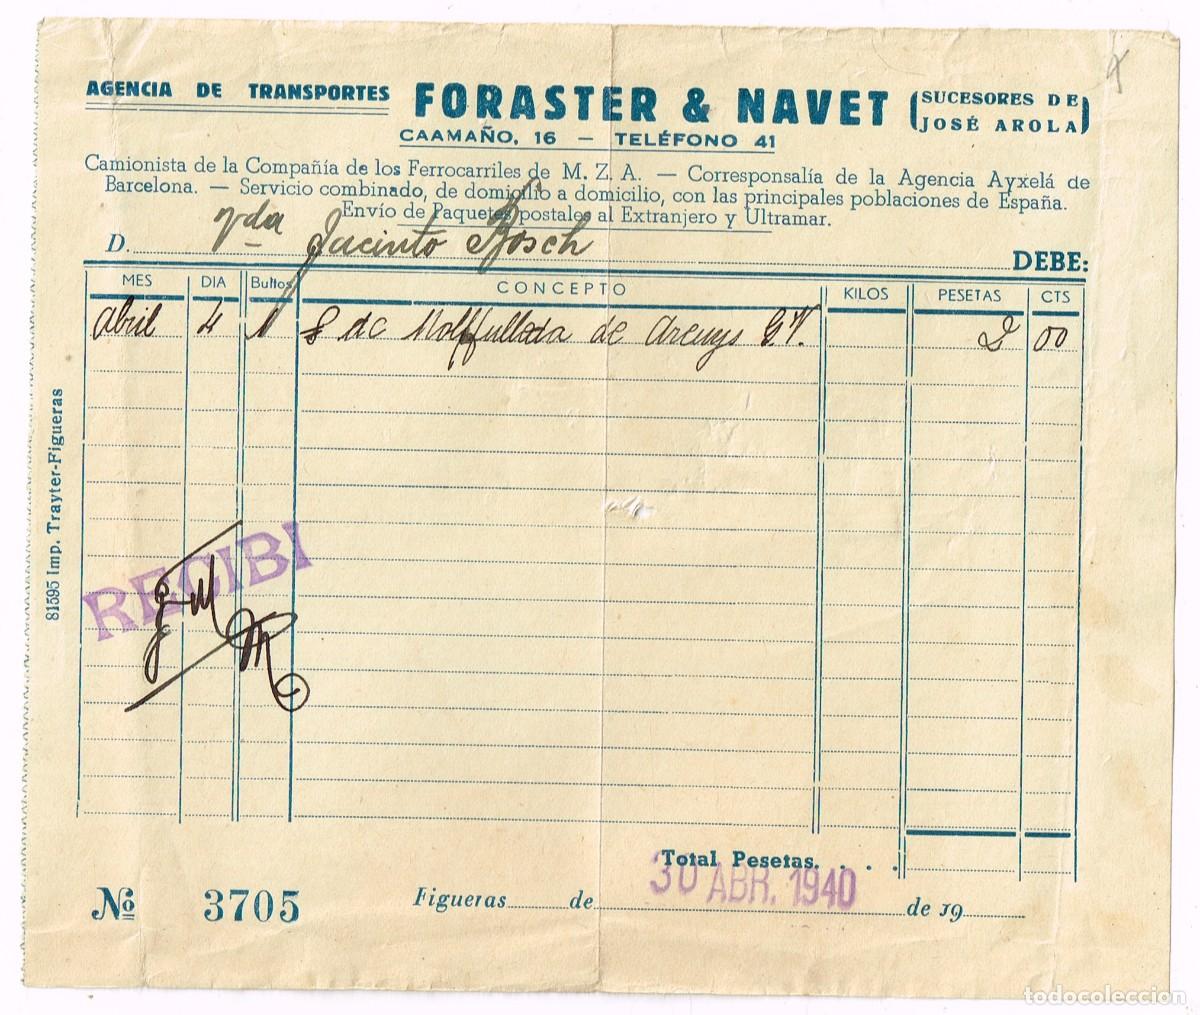 AGENCIA DE TRANSPORTES FORASTER & NAVET (SUCESORES DE JOSÉ AROLA)
CAAMAÑO, 16 — TELÉFONO 41
Camionista de la Compañía de los Ferrocarriles de M. Z. A. — Corresponsalía de la Agencia Ayxelá de
Barcelona. — Servicio combinado, de domicilio a domicilio, con las principales poblaciones de España.
Envío de Paquetes postales al Extranjero y Ultramar.
D. Vda Jacinto Bosch DEBE:
MES DIA Bultos CONCEPTO KILOS PESETAS CTS
Abril 4 1 de Arenys G.V. 2 00
81595 Imp. Trayter-Figueras
RECIBI
Total Pesetas. . . .
30 ABR. 1940
Nº 3705 Figueras de de 19
todocoleccion